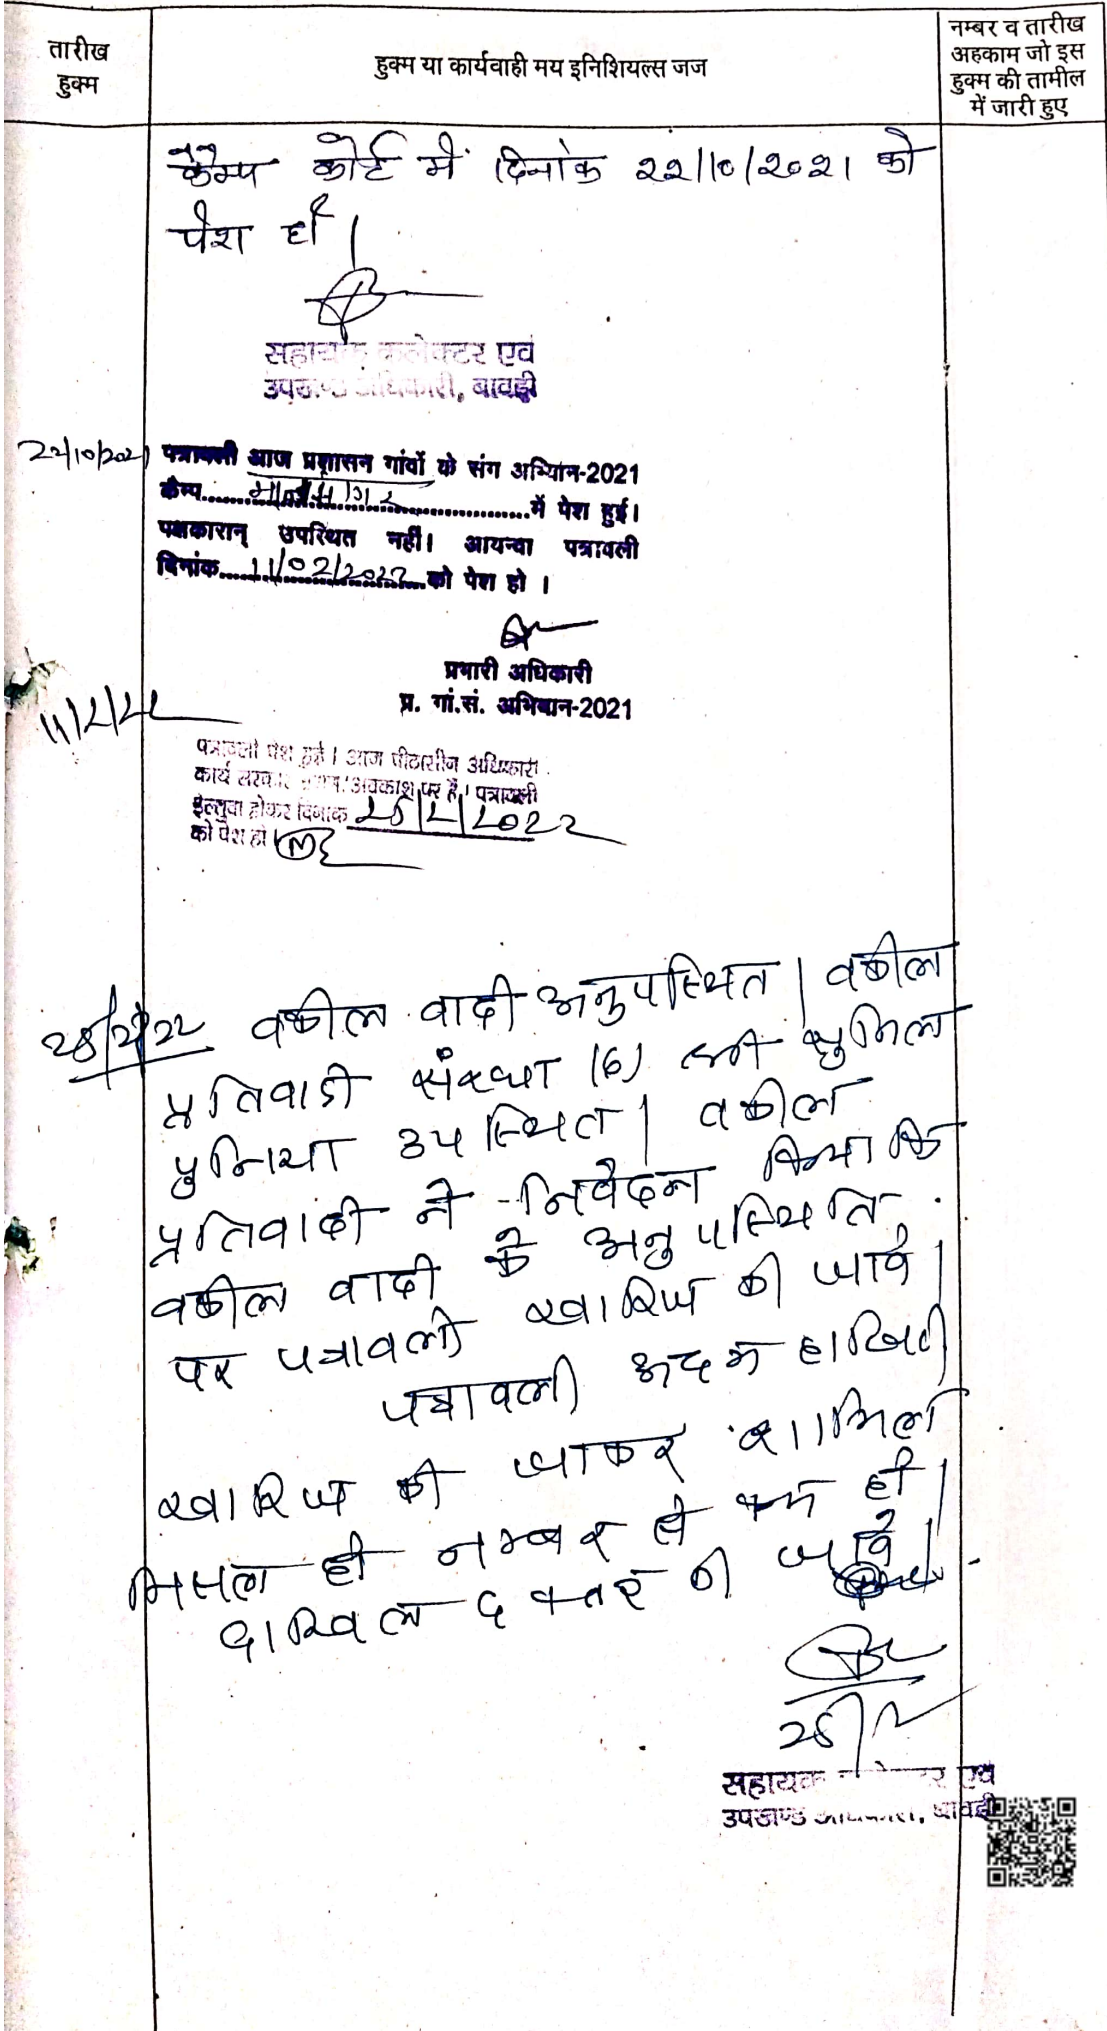 तारीख
हुक्म
हुक्म या कार्यवाही मय इनिशियल्स जज
नम्बर व तारीख
अहकाम जो इस
हुक्म की तामील
में जारी हुए
कैम्प कोर्ट में दिनांक 22/10/2021 को
पेश हो।
सहायक कलेक्टर एवं
उपखण्ड अधिकारी, बावड़ी
22/10/2021
पत्रावली आज प्रशासन गांवों के संग अभियान-2021
कैम्प.....................में पेश हुई।
पक्षकारान् उपस्थित नहीं। आयन्दा पत्रावली
दिनांक....11/02/2022...को पेश हो ।
प्रभारी अधिकारी
प्र. गां.सं. अभियान-2021
11/2/22
पत्रावली पेश हुई। आज पीठासीन अधिकारी
कार्य अवकाश पर है। पत्रावली
ईल्तुवा होकर दिनांक 28/2/2022
को पेश हो
28/2/22 वकील वादी अनुपस्थित। वकील
प्रतिवादी संख्या (6) श्री
पुनिया उपस्थित। वकील
प्रतिवादी ने निवेदन किया कि
वकील वादी के अनुपस्थिति
पर पत्रावली खारिज की जावे।
पत्रावली अदम हाजिरी
खारिज की जाकर शामिल
मिसल हो नम्बर से कम हो।
दाखिल दफ्तर की जावे।
सहायक कलेक्टर एवं
उपखण्ड अधिकारी, बावड़ी